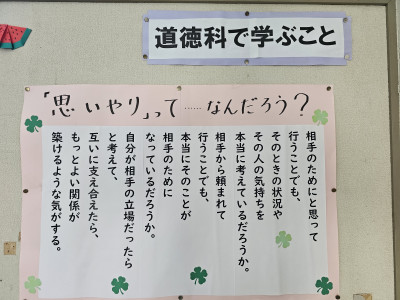 道徳科で学ぶこと
「思いやり」って……なんだろう？
相手のためにと思って
行うことでも、
そのときの状況や
その人の気持ちを
本当に考えているだろうか。
相手から頼まれて
行うことでも、
本当にそのことが
相手のために
なっているだろうか。
自分が相手の立場だったら
と考えて、
互いに支え合えたら、
もっとよい関係が
築けるような気がする。